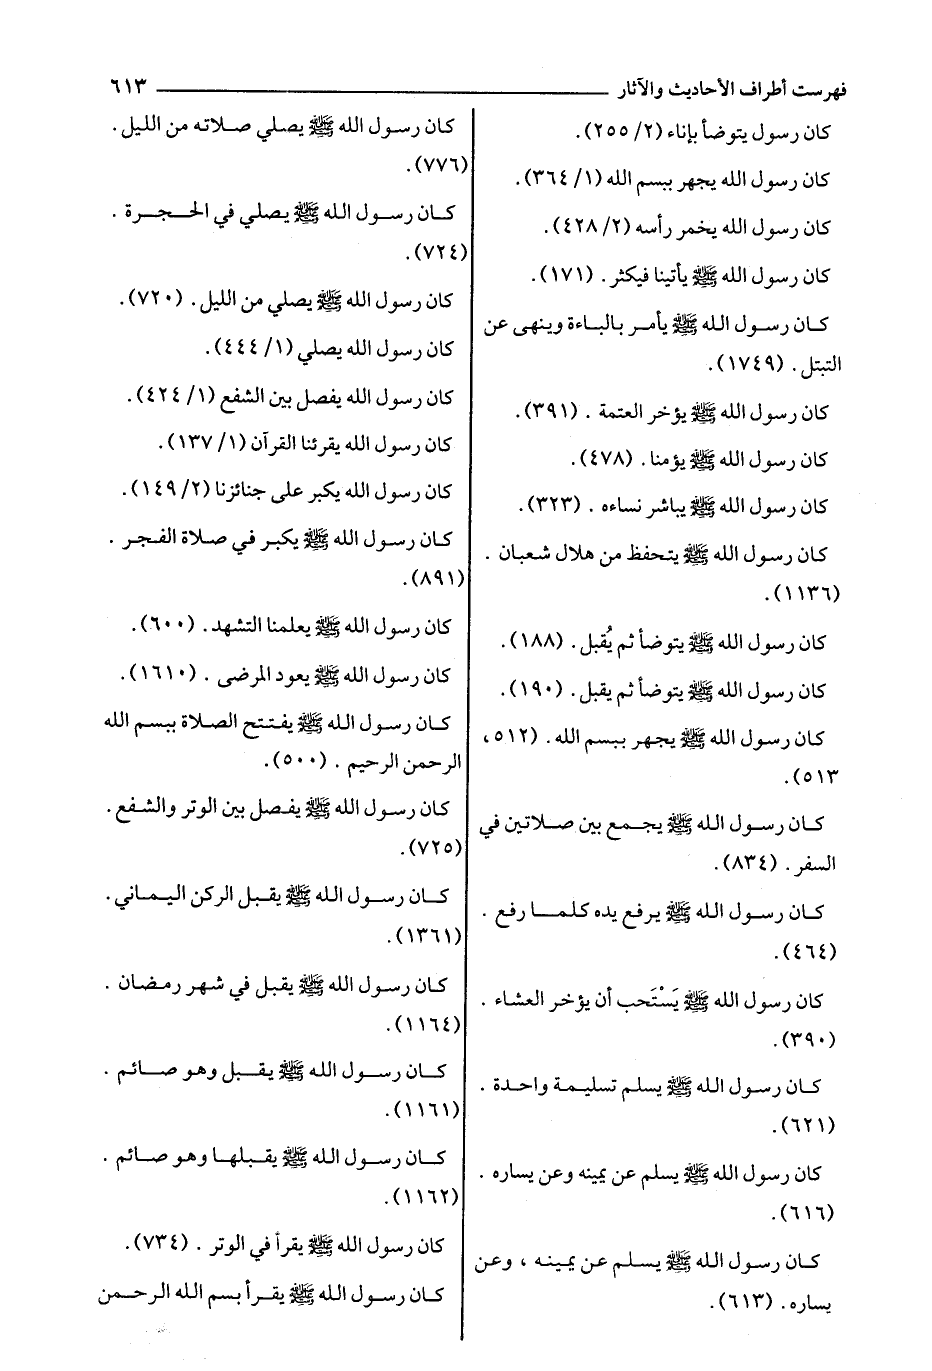 فهرست أطراف الأحاديث والآثار ٦١٣
كان رسول يتوضأ بإناء (٢/ ٢٥٥).
كان رسول الله يجهر ببسم الله (١/ ٣٦٤).
كان رسول الله يخمر رأسه (٢/ ٤٢٨).
كان رسول الله ﷺ يأتينا فيكثر. (١٧١).
كان رسول الله ﷺ يأمر بالباءة وينهى عن
التبتل. (١٧٤٩).
كان رسول الله ﷺ يؤخر العتمة. (٣٩١).
كان رسول الله ﷺ يؤمنا. (٤٧٨).
كان رسول الله ﷺ يباشر نساءه. (٣٢٣).
كان رسول الله ﷺ يتحفظ من هلال شعبان.
(١١٣٦).
كان رسول الله ﷺ يتوضأ ثم يُقبل. (١٨٨).
كان رسول الله ﷺ يتوضأ ثم يقبل. (١٩٠).
كان رسول الله ﷺ يجهر ببسم الله. (٥١٢،
٥١٣).
كان رسول الله ﷺ يجمع بين صلاتين في
السفر. (٨٣٤).
كان رسول الله ﷺ يرفع يده كلما رفع.
(٤٦٤).
كان رسول الله ﷺ يَسْتَحب أن يؤخر العشاء.
(٣٩٠).
كان رسول الله ﷺ يسلم تسليمة واحدة.
(٦٢١).
كان رسول الله ﷺ يسلم عن يمينه وعن يساره.
(٦١٦).
كان رسول الله ﷺ يسلم عن يمينه، وعن
يساره. (٦١٣).
كان رسول الله ﷺ يصلي صلاته من الليل.
(٧٧٦).
كان رسول الله ﷺ يصلي في الحجرة.
(٧٢٤).
كان رسول الله ﷺ يصلي من الليل. (٧٢٠).
كان رسول الله يصلي (١/ ٤٤٤).
كان رسول الله يفصل بين الشفع (١/ ٤٢٤).
كان رسول الله يقرئنا القرآن (١/ ١٣٧).
كان رسول الله يكبر على جنائزنا (٢/ ١٤٩).
كان رسول الله ﷺ يكبر في صلاة الفجر.
(٨٩١).
كان رسول الله ﷺ يعلمنا التشهد. (٦٠٠).
كان رسول الله ﷺ يعود المرضى. (١٦١٠).
كان رسول الله ﷺ يفتتح الصلاة ببسم الله
الرحمن الرحيم. (٥٠٠).
كان رسول الله ﷺ يفصل بين الوتر والشفع.
(٧٢٥).
كان رسول الله ﷺ يقبل الركن اليماني.
(١٣٦١).
كان رسول الله ﷺ يقبل في شهر رمضان.
(١١٦٤).
كان رسول الله ﷺ يقبل وهو صائم.
(١١٦١).
كان رسول الله ﷺ يقبلها وهو صائم.
(١١٦٢).
كان رسول الله ﷺ يقرأ في الوتر. (٧٣٤).
كان رسول الله ﷺ يقرأ بسم الله الرحمن